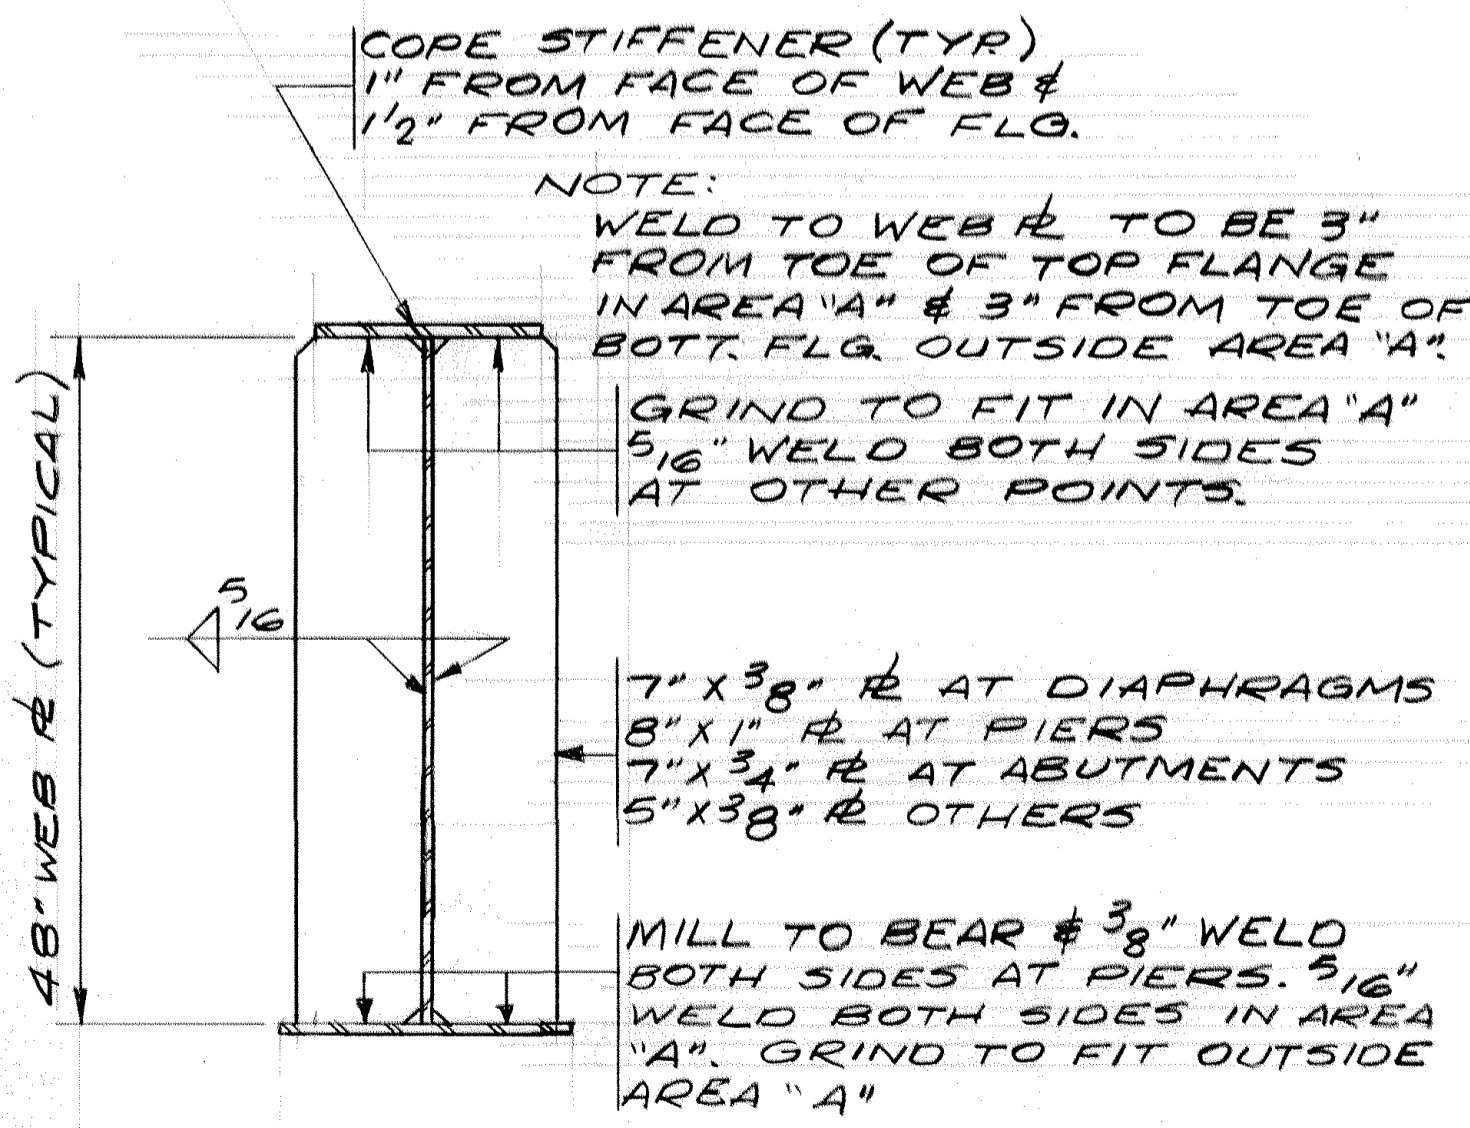 COPE STIFFENER (TYP.)
1" FROM FACE OF WEB &
1 1/2" FROM FACE OF FLG.
NOTE:
WELD TO WEB ℄ TO BE 3"
FROM TOE OF TOP FLANGE
IN AREA "A" & 3" FROM TOE OF
BOTT. FLG. OUTSIDE AREA "A".
GRIND TO FIT IN AREA "A"
5/16" WELD BOTH SIDES
AT OTHER POINTS.
48" WEB PL (TYPICAL)
5/16
7" X 3/8" PL AT DIAPHRAGMS
8" X 1" PL AT PIERS
7" X 3/4" PL AT ABUTMENTS
5" X 3/8" PL OTHERS
MILL TO BEAR & 3/8" WELD
BOTH SIDES AT PIERS. 5/16"
WELD BOTH SIDES IN AREA
"A". GRIND TO FIT OUTSIDE
AREA "A"